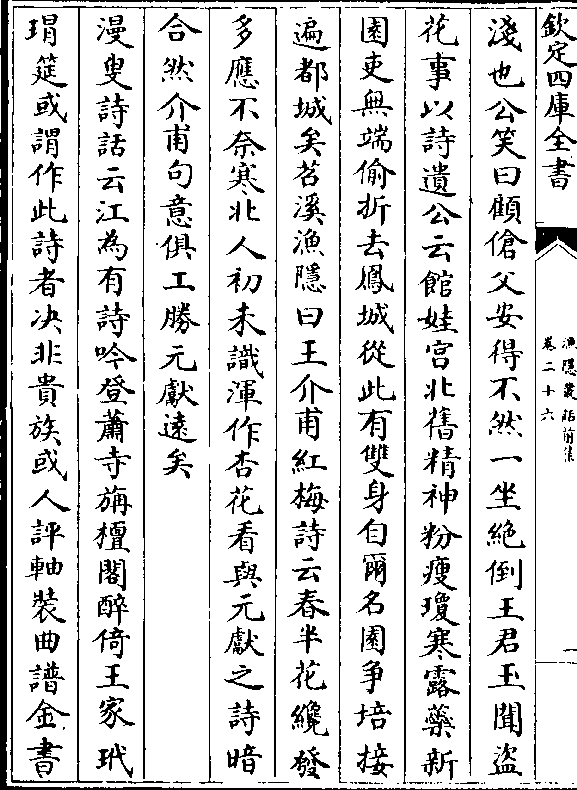 欽定四庫全書
漁隱叢話前集
卷二十六
一
淺也公笑曰顧傖父安得不然一坐絶倒王君玉聞盜
花事以詩遺公云館娃宮北舊精神粉瘦瓊寒露蘂新
園吏無端偷折去鳳城從此有雙身自爾名園爭培接
遍都城矣苕溪漁隱曰王介甫紅梅詩云春半花纔發
多應不奈寒北人初未識渾作杏花看與元獻之詩暗
合然介甫句意俱工勝元獻遠矣
漫叟詩話云江為有詩吟登蕭寺旃檀閣醉倚王家玳
瑁筵或謂作此詩者决非貴族或人評軸裝曲譜金書